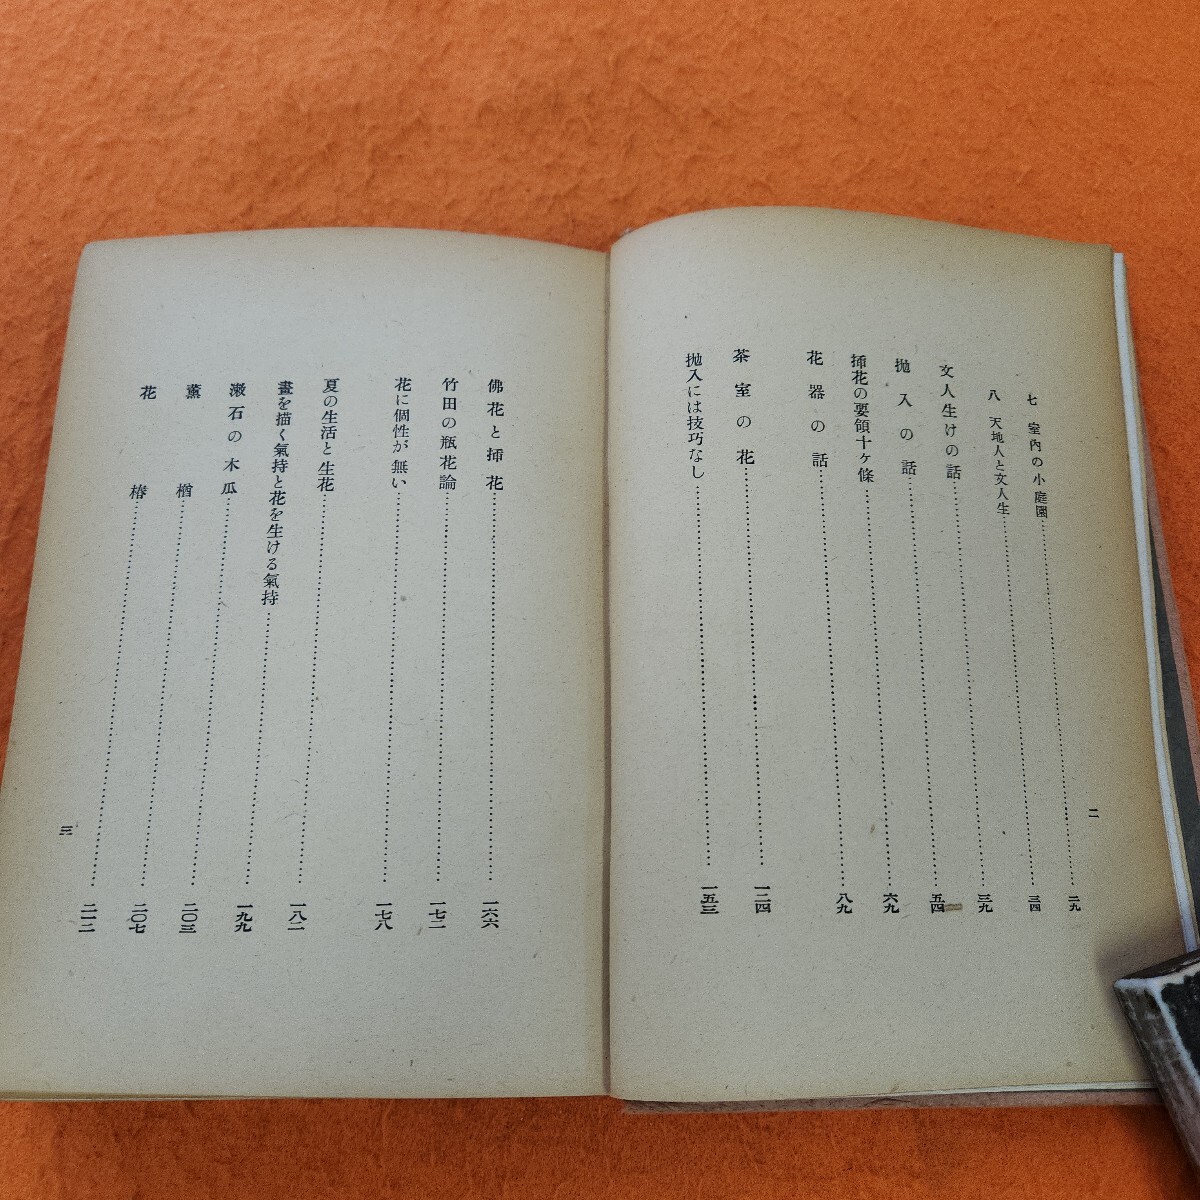 七 室內の小庭園……二九
八 天地人と文人生……三四
文人生けの話……三九
抛入の話……五四
揷花の要領十ヶ條……六九
花器の話……八九
茶室の花……一二四
抛入には技巧なし……一五三
二
佛花と揷花……一六六
竹田の瓶花論……一七二
花に個性が無い……一七八
夏の生活と生花……一八二
畫を描く氣持と花を生ける氣持……一九九
漱石の木瓜……二〇三
薰楢……二〇七
花椿……二一二
三